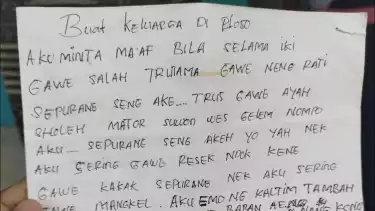 Buat KELUARGA DI PLOSO
AKU MINTA MA'AF BILA SELAMA IKI
GAWE SALAH TRUTAMA GAWE NENG RATI
SEPURANE SENG AKE... TRUS GAWE AYAH
SHOLEH MATOR SUWON WES GELEM NOMPO
AKU... SEPURANE SENG AKEH YO YAH NEK
AKU SERING GAWE RESEK NDEK KENE
GAWE KAKAK SEPURANE NEK AKU SERING
GAWE MANGKEL. AKU EMD NG KALTIM TAMBAH